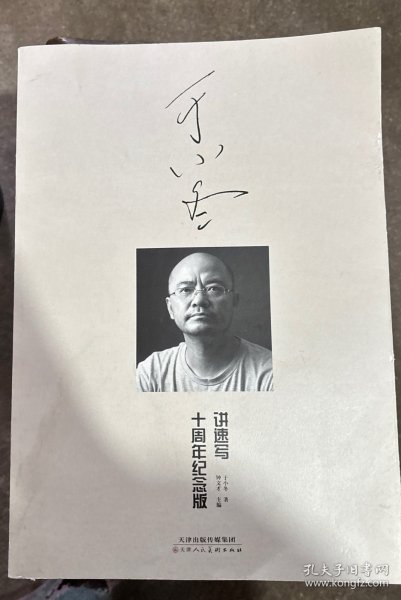 于小冬
讲速写
十周年纪念版
于小冬 著
钟文才 主编
天津出版传媒集团
天津人民美术出版社
孔夫子旧书网
www.kongfz.com